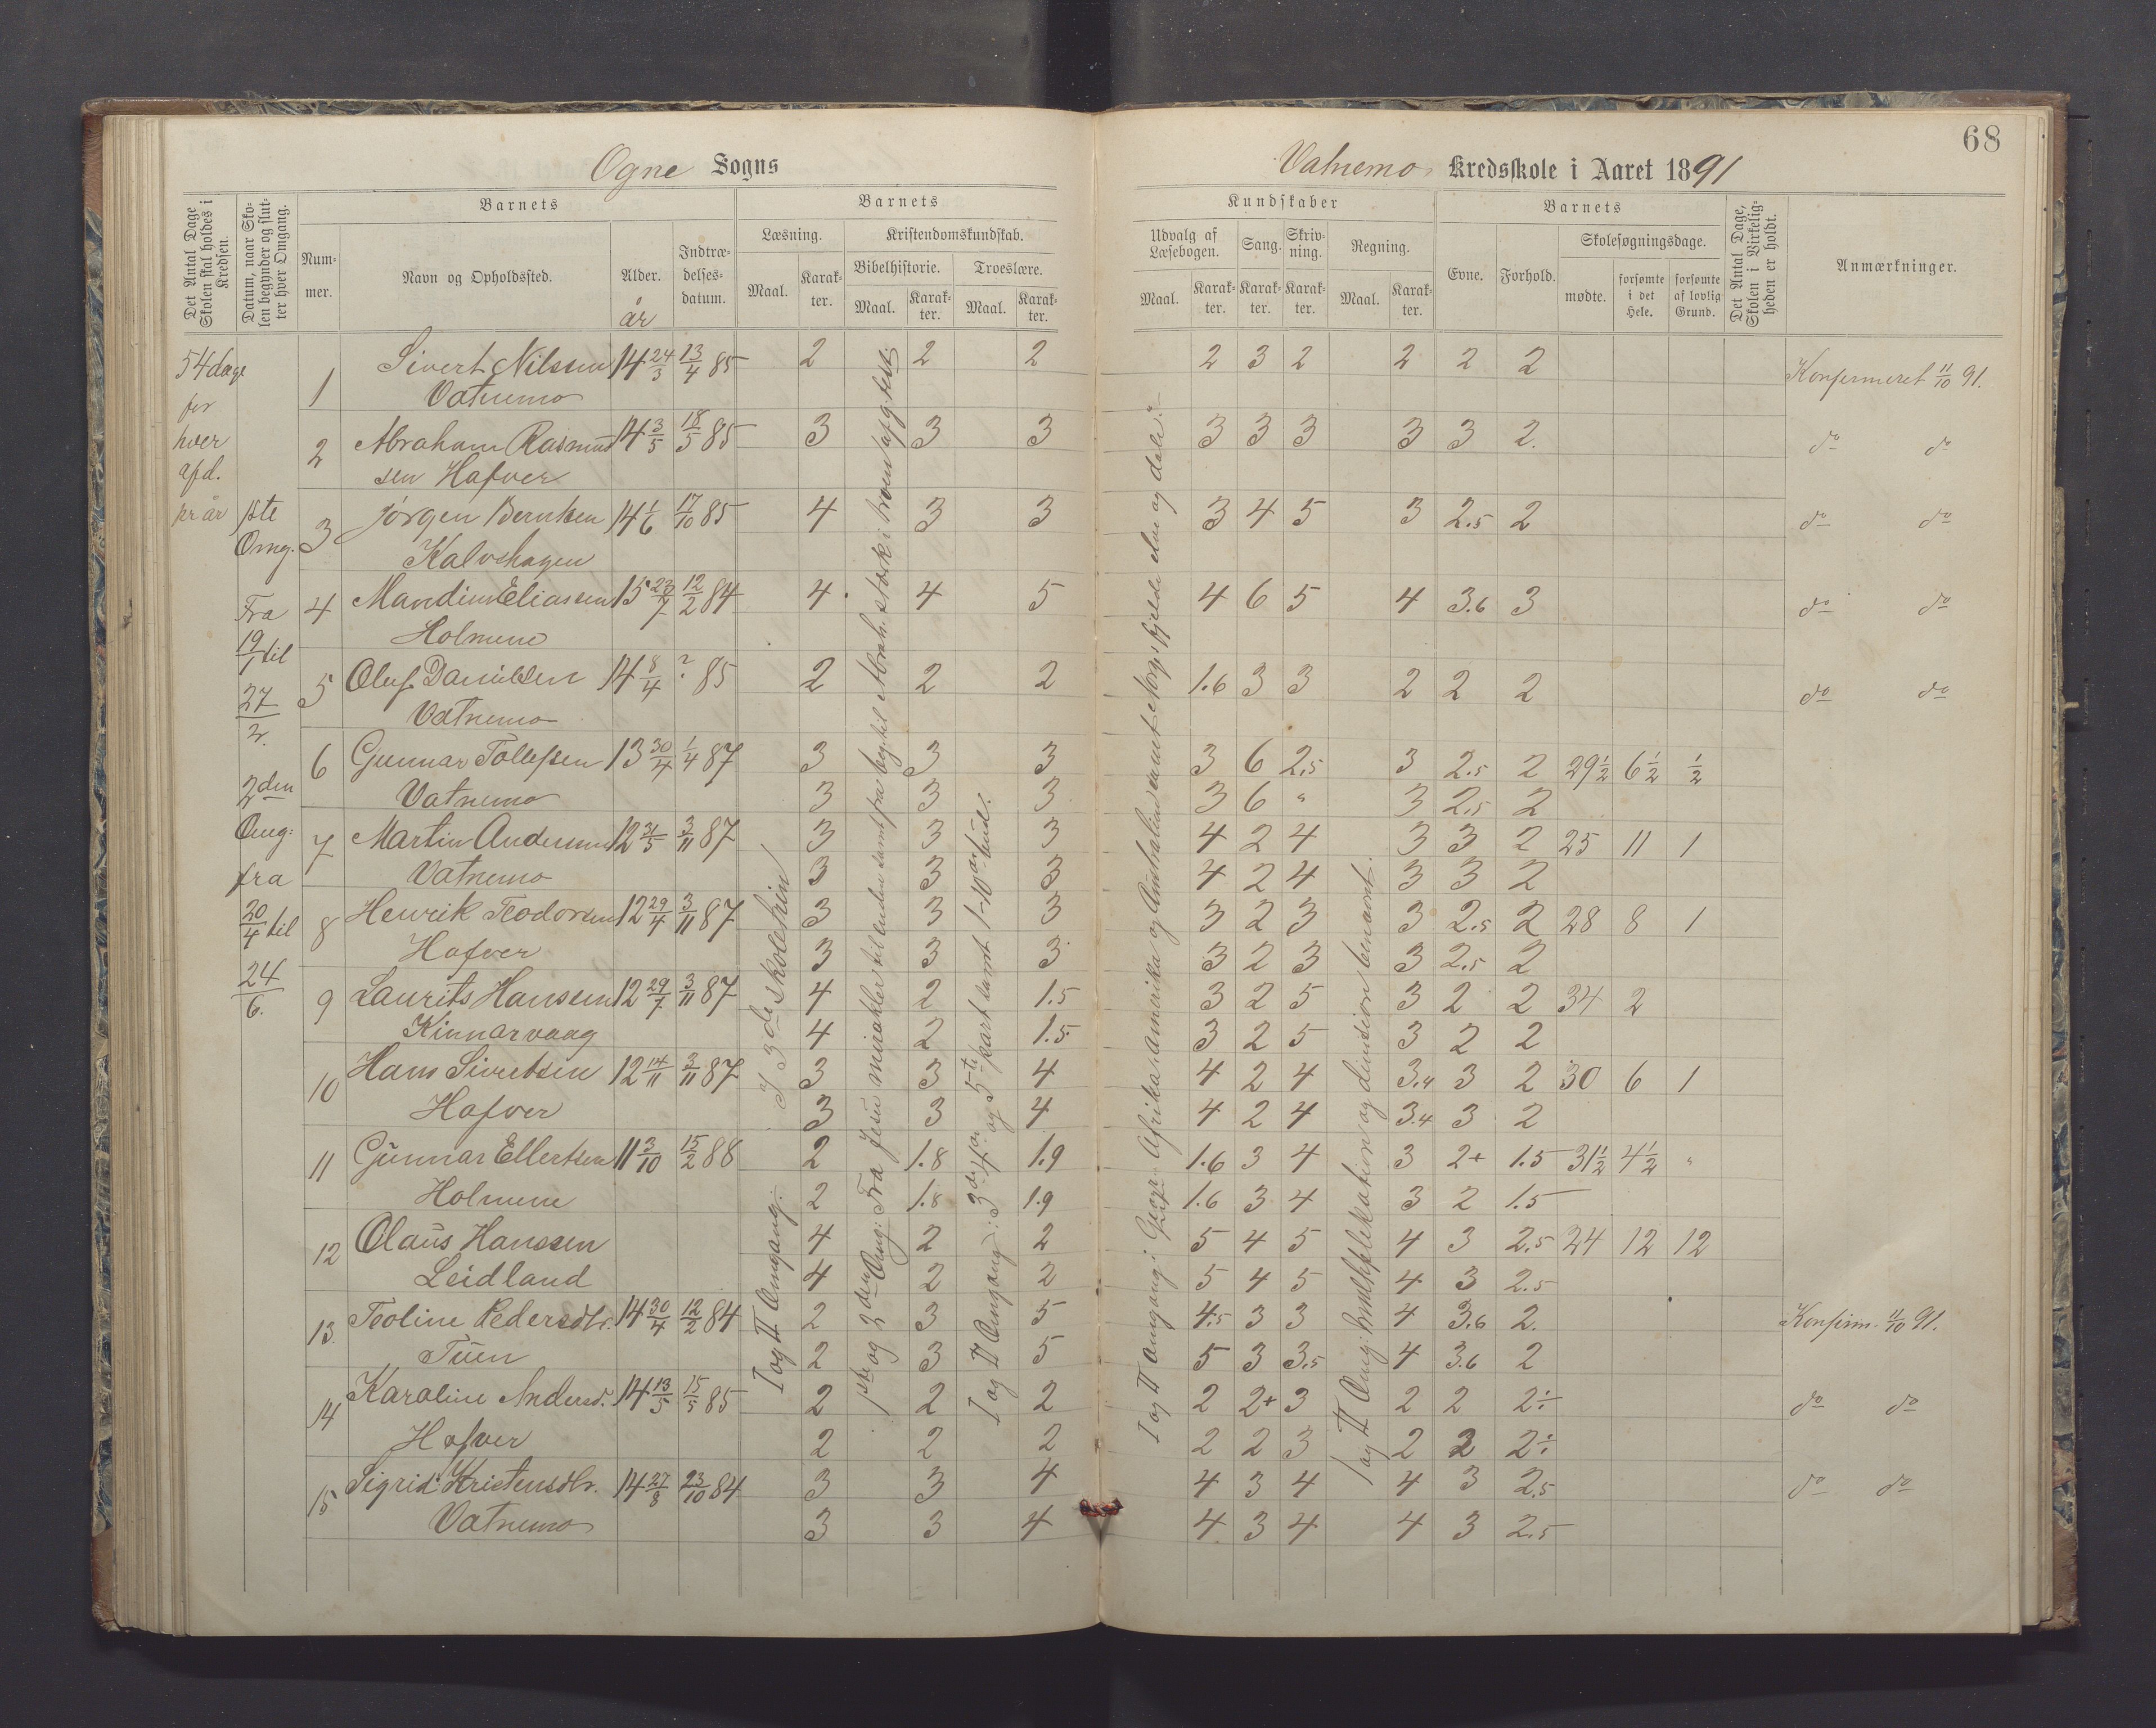 68
Ogne Sogns
Vatnemo Kredsskole i Aaret 1891
Det Antal Dage Skolen skal holdes i Kredsen.
Datum, naar Skolen begynder og slutter hver Omgang.
Barnets
Nummer.
Navn og Opholdssted.
Alder.
år
Indtrædelsesdatum.
Barnets
Læsning.
Maal.
Karakter.
Kristendomskundskab.
Bibelhistorie.
Maal.
Karakter.
Troeslære.
Maal.
Karakter.
Kundskaber
Udvalg af Læsebogen.
Maal.
Karakter.
Sang.
Karakter.
Skrivning.
Karakter.
Regning.
Maal.
Karakter.
Barnets
Evne.
Forhold.
Skolesøgningsdage.
mødte.
forsømte i det Hele.
forsømte af lovlig Grund.
Det Antal Dage, Skolen i Virkeligheden er holdt.
Anmærkninger.
54 dage
for
hver
afd.
pr år
1ste
Omg.
Fra
19/1 til
27/2.
2den
Omg:
fra
20/4 til
24/6.
1 Sivert Nilssen 14 24/3 13/4 85 2 2 2 2 3 2 2 2 2 Konfirmeret 11/10 91.
Vatnemo
2 Abraham Rasmus 14 3/5 18/5 85 3 3 3 3 3 3 3 3 2. do do
sen Hafver
3 Jørgen Berntsen 14 1/6 17/10 85 4 3 3 3 4 5 3 2.5 2 do do
Kalvshagen
4 Mandius Eliassen 15 27/7 12/2 84 4 4 5 4 6 5 4 3.6 3 do do
Holmene
5 Oluf Danielsen 14 8/4 ? 85 2 2 2 1.6 3 3 2 2 2 do do
Vatnemo
6 Gunnar Tollefsen 13 30/4 1/4 87 3 3 3 3 6 2.5 3 2.5 2 29½ 6½ ½
Vatnemo 3 3 3 3 6 " 3 2.5 2
7 Martin Andersen 12 31/5 3/11 87 3 3 3 4 2 4 3 3 2 25 11 1
Vatnemo 3 3 3 4 2 4 3 3 2
8 Henrik Teodorsen 12 29/4 3/11 87 3 3 3 3 2 3 3 2.5 2 28 8 1
Hafver 3 3 3 3 2 3 3 2.5 2
9 Laurits Hanssen 12 29/7 3/11 87 4 2 1.5 3 2 5 3 2 2 34 2
Kinnarvaag 4 2 1.5 3 2 5 3 2 2
10 Hans Sivertsen 12 14/11 3/11 87 3 3 4 4 2 4 3.4 3 2 30 6 1
Hafver 3 3 4 4 2 4 3.4 3 2
11 Gunnar Ellertsen 11 3/10 15/2 88 2 1.8 1.9 1.6 3 4 3 2+ 1.5 31½ 4½ "
Holmene 2 1.8 1.9 1.6 3 4 3 2 1.5
12 Olaus Hanssen 4 2 2 5 4 5 4 3 2.5 24 12 12
Leidland 4 2 2 5 4 5 4 3 2.5
13. Teoline Pedersdtr. 14 30/4 12/2 84 2 3 5 4.5 3 3 4 3.6 2. Konfirm. 11/10 91.
Tuen 2 3 5 5 3 3.5 4 3.6 2
14 Karoline Andersd. 14 13/5 15/5 85 2 2 2 2 2+ 3 2 2 2÷ do do
Hafver 2 2 2 2 2 3 2 2 2÷
15 Sigrid Kristensdtr. 14 27/8 23/10 84 3 3 4 4 3 4 4 3 2.5 do do
Vatnemo 3 3 4 4 3 4 4 3 2.5
I og II Omgang: I 3de skoletrin
1ste og 2den Omg: Fra Jesu mirakler til enden samt fra beg. til Abrah.
I og II Omgang: 3die 4de og 5te part samt 1-10de bud.
I og II Omgang: Geogr. Afrika Amerika og Australien samt Norges fjelde elve og dale.
I og II Omg: Multiplikation og division benævnt.